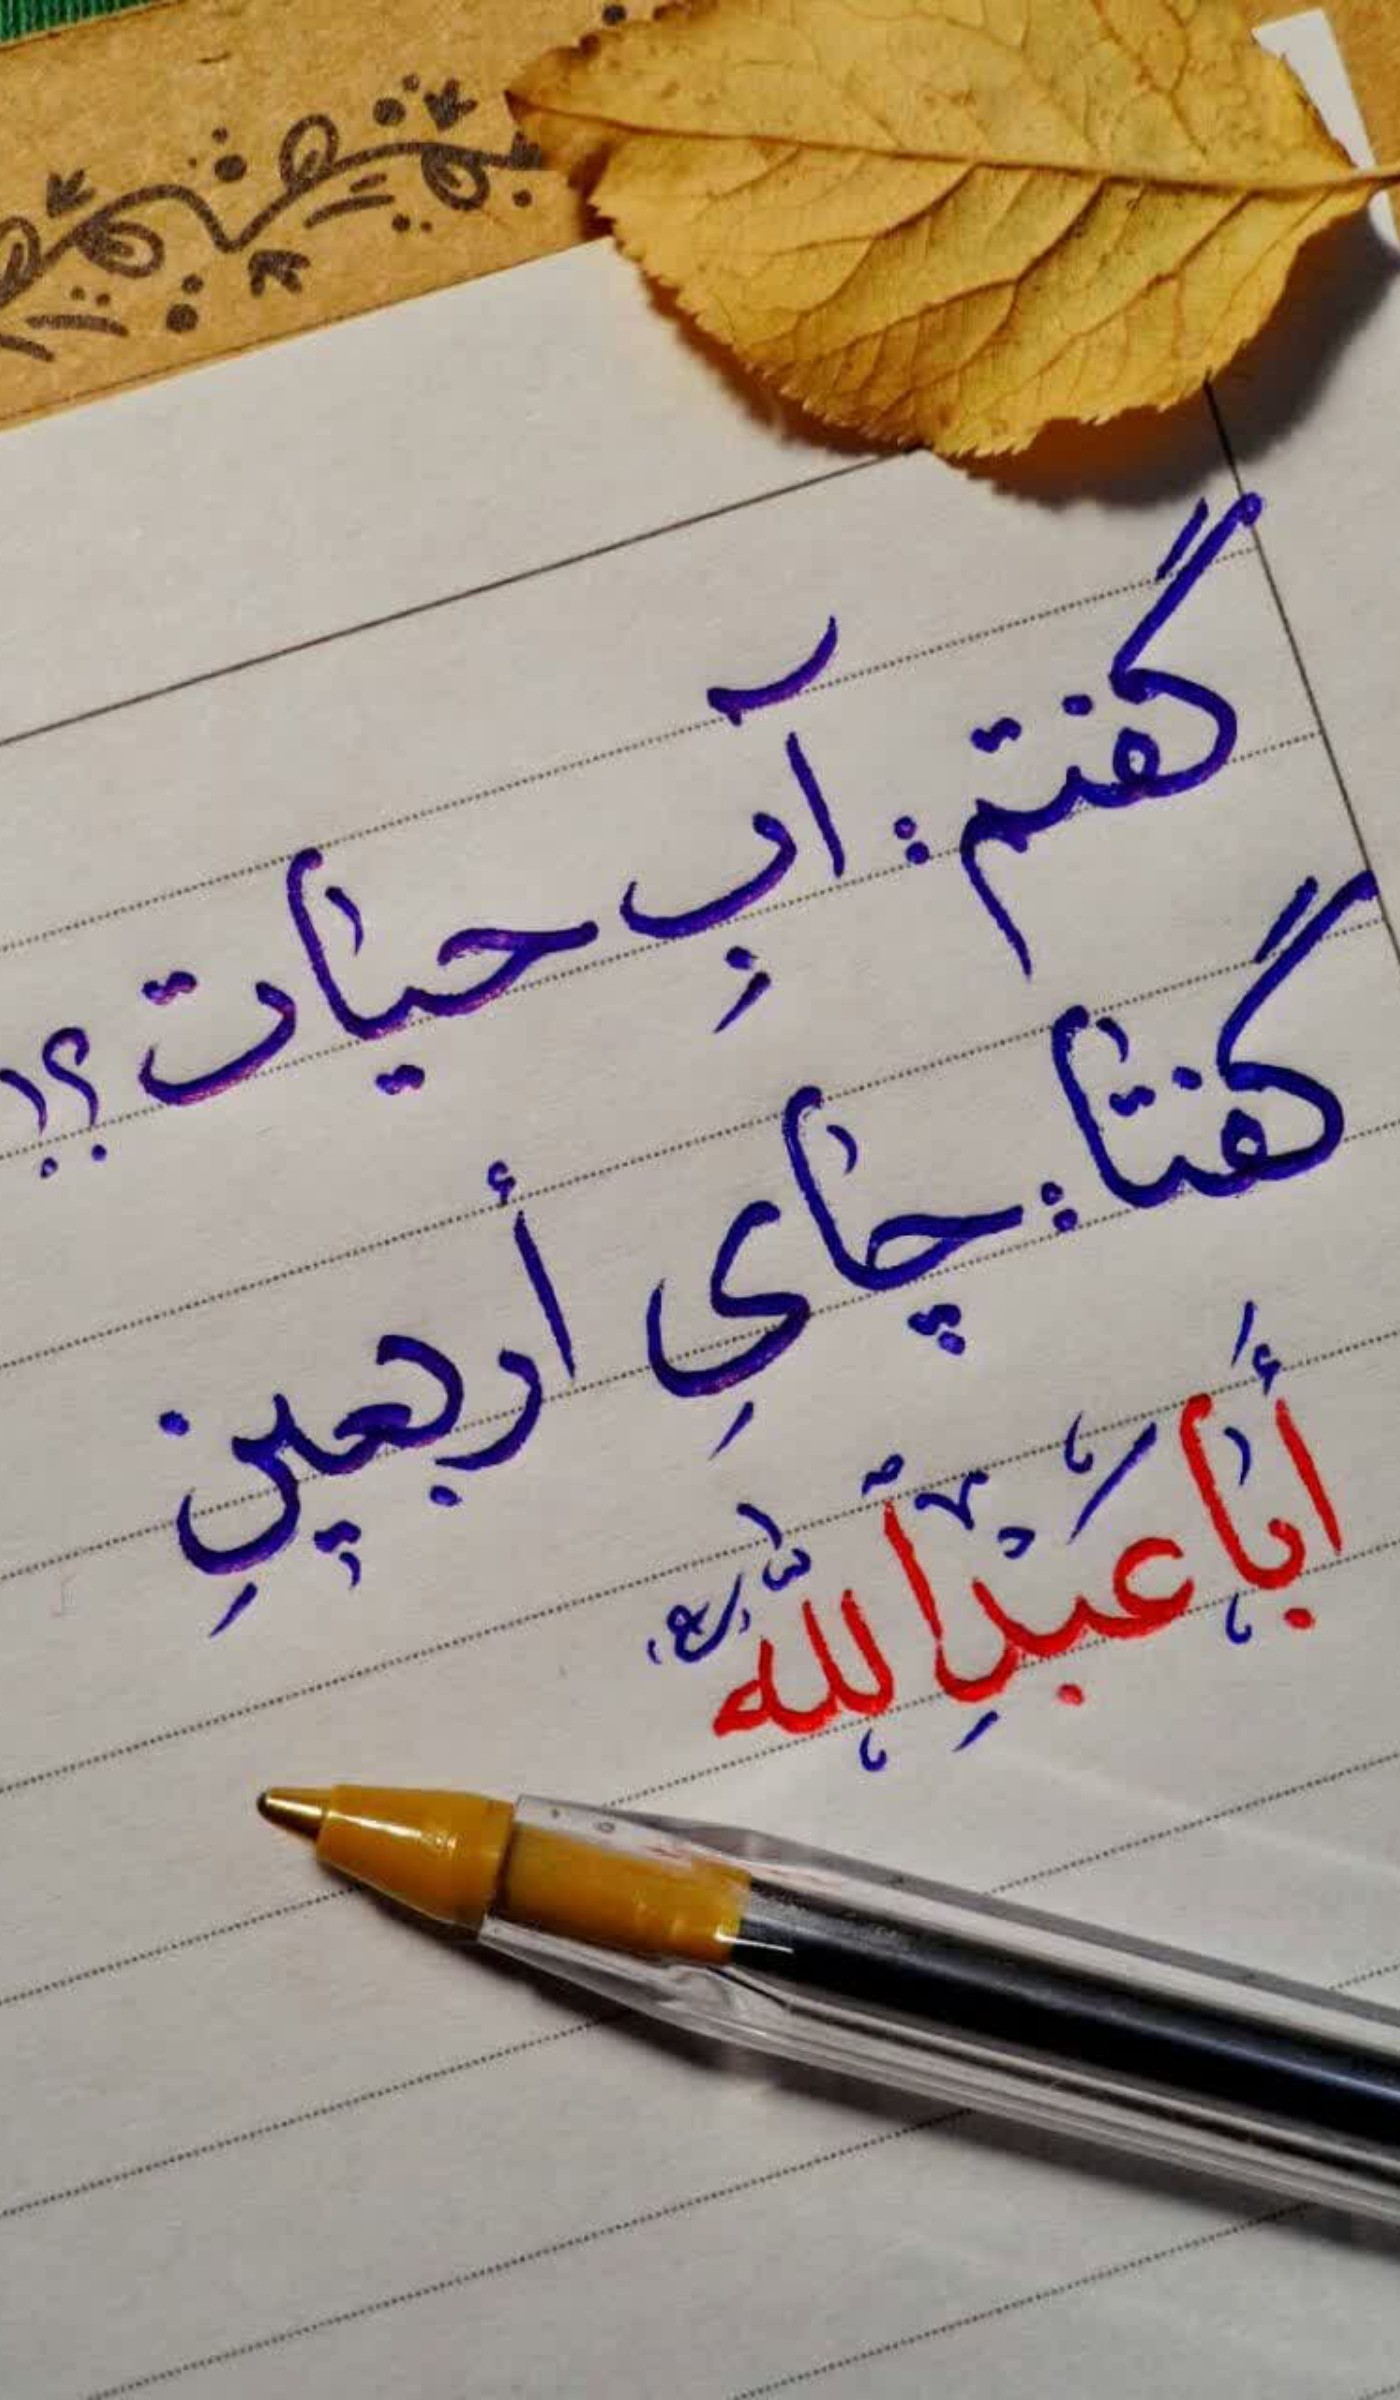 گفتم: آبِ حیات؟!
گفتا: چایِ أربعینِ
أباعَبْدِٱللّٰه (ع)